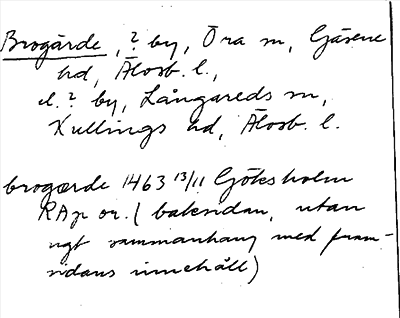 Brogärde, ? by, Ora sn, Gäsene
hd, Älvsb. l.,
el. ? by, Långareds sn,
Kullings hd, Älvsb. l.
brogærde 1463 13/11 Göksholm
RAp or. (baksidan, utan
ngt sammanhang med fram-
sidans innehåll)